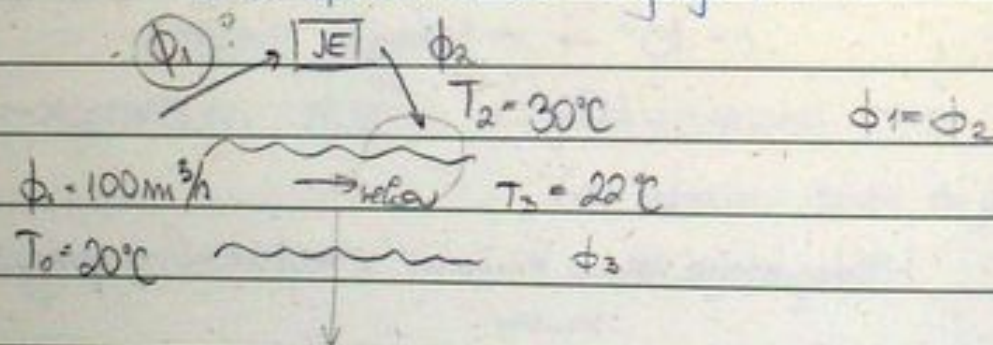 Φ1 ? JE Φ2
T2 = 30°C Φ1 = Φ2
Φ1 = 100 m³/h → T3 = 22°C
T0 = 20°C Φ3